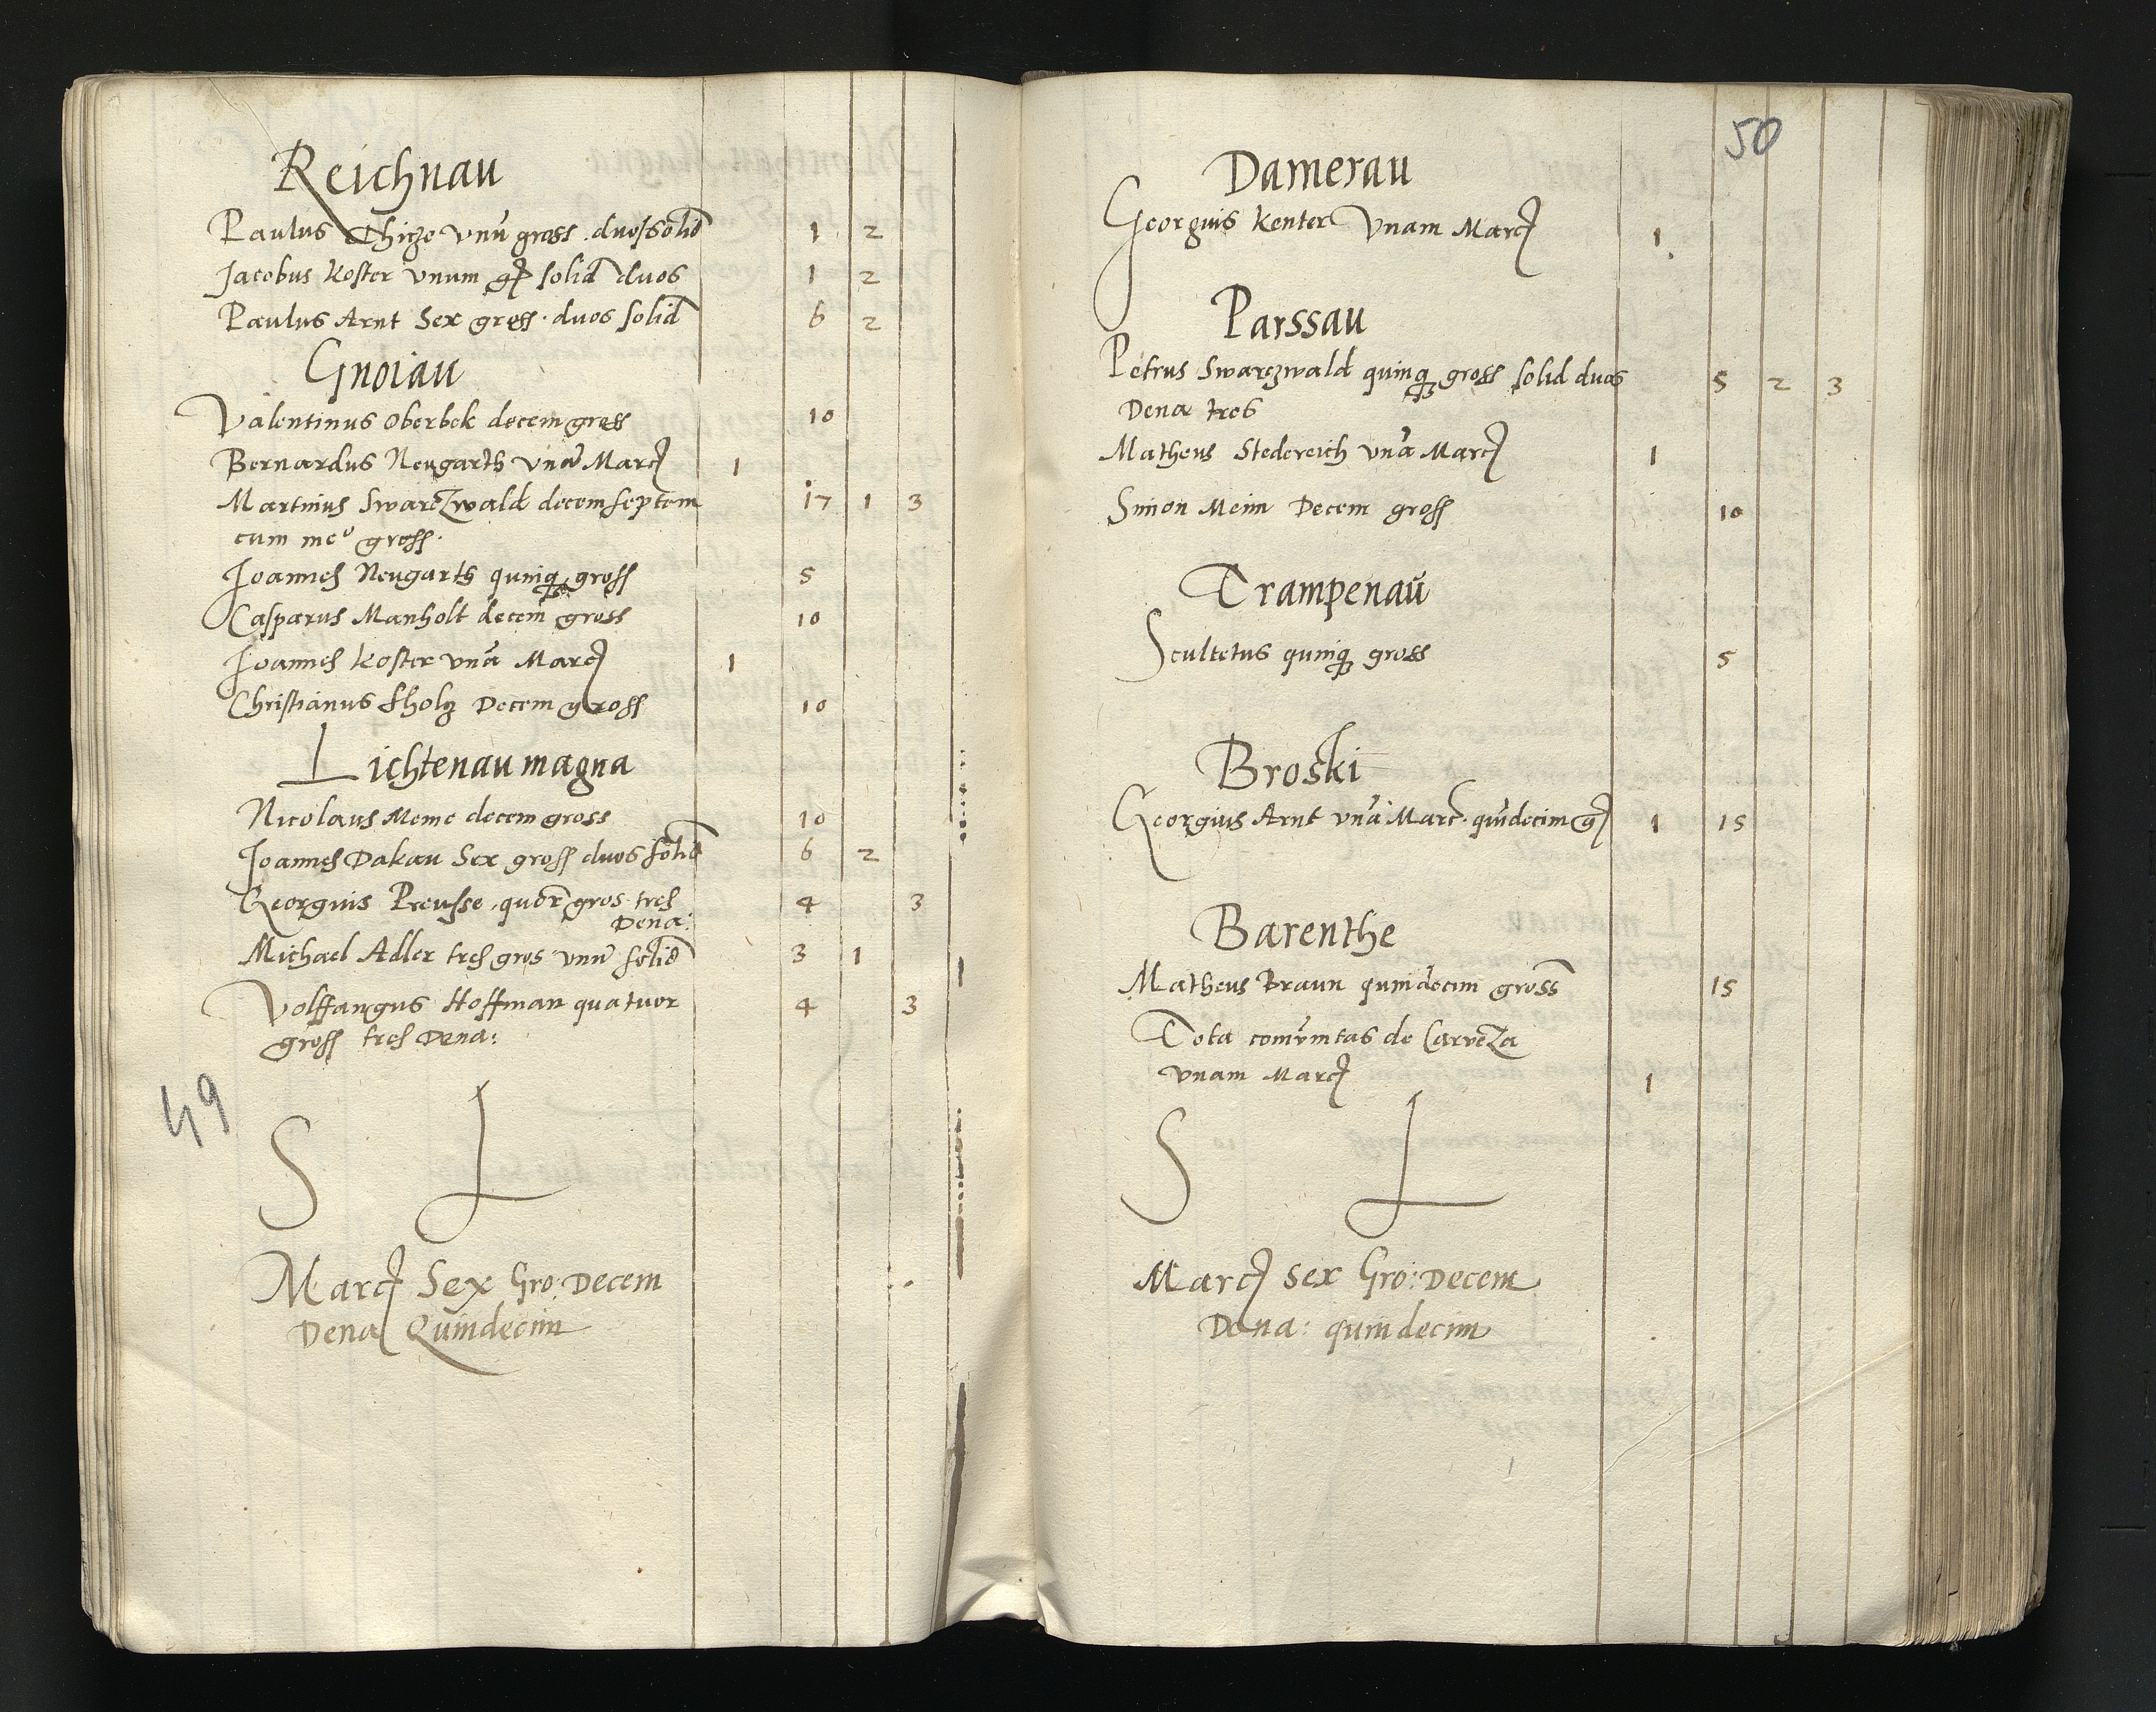 Reichnau
Paulus Thiże vnū gross. duos solid 1 2
Jacobus Koster vnum gr solid duos 1 2
Paulus Arnt Sex gross. duos solid 6 2
Gnoiau
Valentinus Oberbek decem gross 10
Bernardus Neugarth vnā Marc 1
Martinus Swarczwald decem septem 17 1 3
cum meº gross.
Joannes Neugarth quinq gross 5
Casparus Manholt decem gross 10
Joannes Koster vnā Marc 1
Christianus Sholz Decem gross 10
Lichtenau magna
Nicolaus Meme decem gross 10
Joannes Dakau Sex gross duos solid 6 2
Georgius Preusse quor gros tres 4 3
Dena:
Michael Adler tres gros vnū solid 3 1
Volffangus Hoffman quatuor 4 3
gross tres Dena:
49
S L
Marc Sex Gro: Decem
Dena Quindecim
50
Damerau
Georgius Kenter Vnam Marc 1
Parssau
Petrus Swarczwald quinq gross solid duos 5 2 3
Dena tres
Matheus Stedereich vnā Marc 1
Simon Meim Decem gross 10
Trampenaŭ
Scultetus quinq gross 5
Broski
Georgius Arnt vnā Marc. quindecim gr 1 15
Barenthe
Matheus Braun quindecim gross 15
Tota comūnitas de Carvēza
vnam Marc 1
S L
Marc sex Gro: Decem
Dena: quindecim